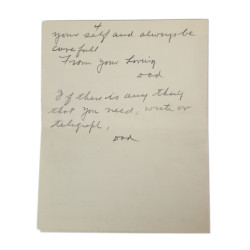 4
your self and always be
carefull
From your Loving
Dad
If there is any thing
that you need, write or
telegraph,
Dad